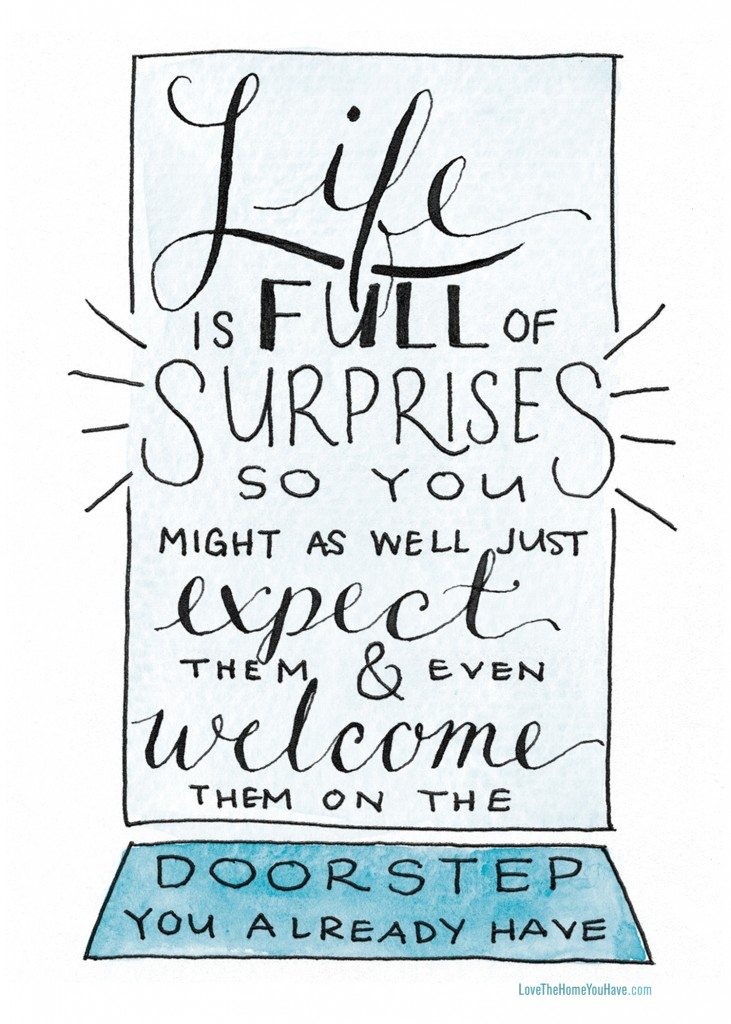 Life
IS FULL OF
SURPRISES
SO YOU
MIGHT AS WELL JUST
expect
THEM & EVEN
welcome
THEM ON THE
DOORSTEP
YOU ALREADY HAVE
LoveTheHomeYouHave.com